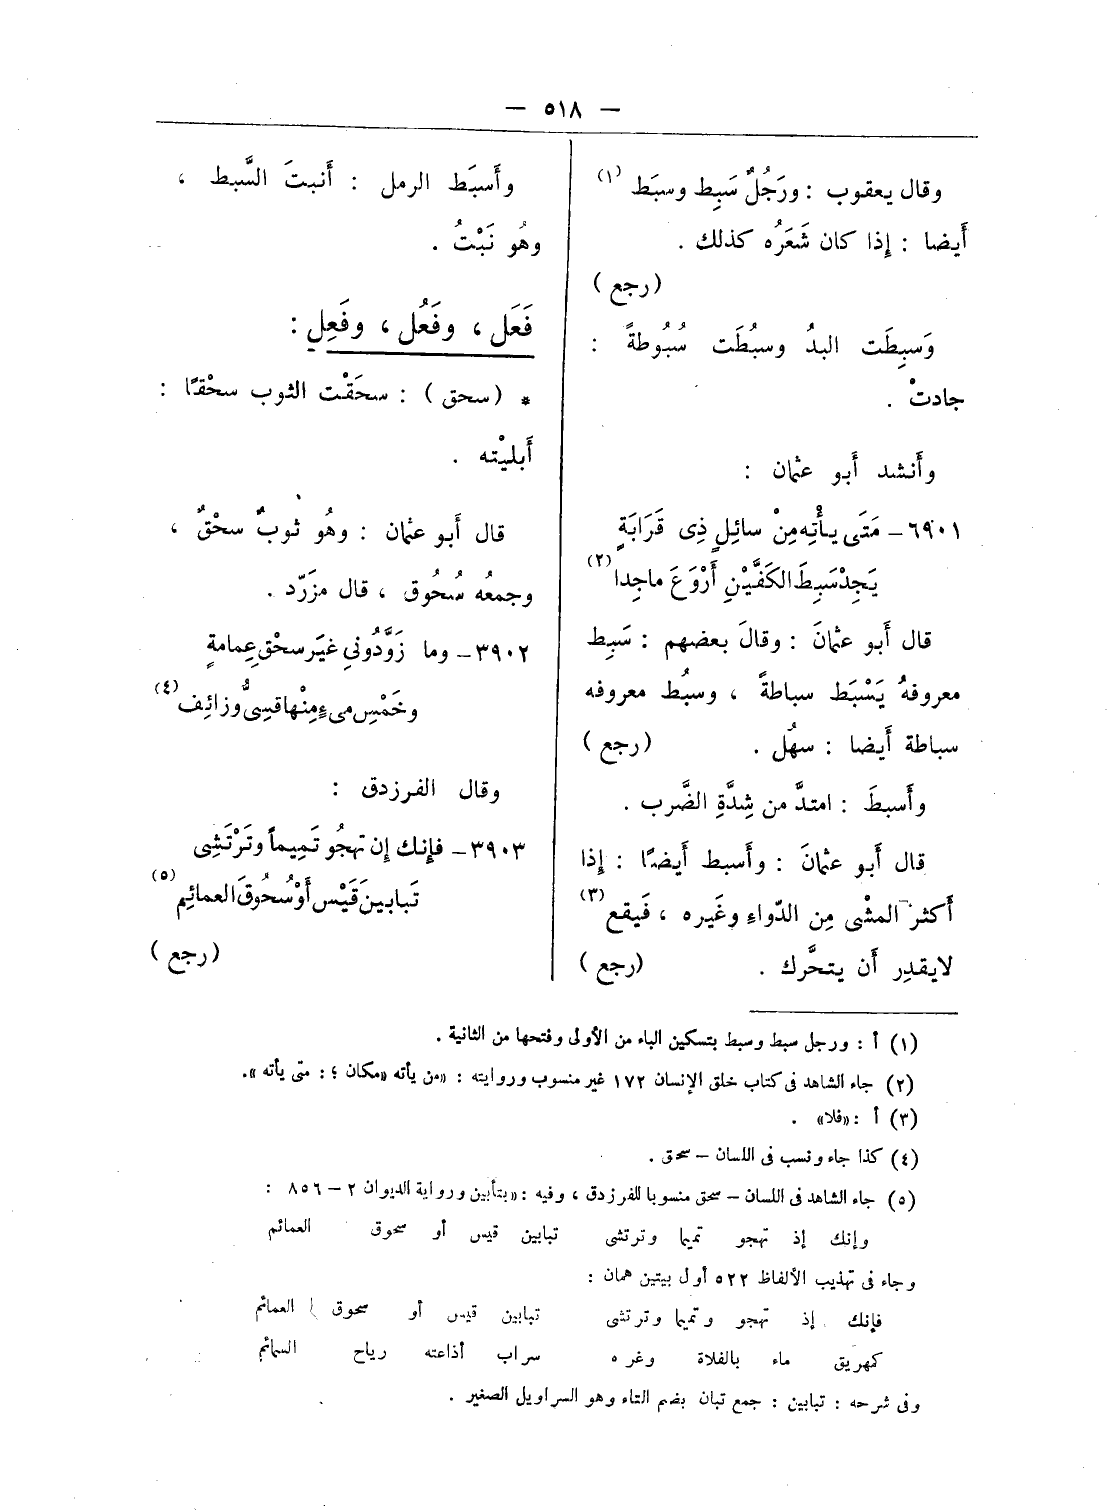 — ٥١٨ —
وقال يعقوب : ورَجُلٌ سَبِط وسبَط (١)
أَيضا : إِذا كان شَعَرُه كذلك .
(رجع)
وَسبِطَت اليدُ وسبُطَت سُبُوطةً :
جادتْ .
وأَنشد أَبو عثمان :
٦٩٠١ – مَتَى يأْتِه مِنْ سائِلٍ ذِى قَرَابَةٍ
يَجِدْ سَبِطَ الكَفَّيْنِ أَرْوَعَ ماجِدا (٢)
قال أَبو عثمانَ : وقالَ بعضهم : سَبِط
معروفهُ يَسْبَط سباطةً ، وسبُط معروفه
سباطة أَيضا : سهُل . (رجع)
وأَسبطَ : امتدَّ من شِدَّةِ الضَّرب .
قال أَبو عثمانَ : وأَسبط أَيضًا : إِذا
أَكثر المشْى مِن الدّواءِ وغَيره ، فَيقع (٣)
لايقدِر أَن يتحَّرك . (رجع)
وأَسبَط الرمل : أَنبتَ السَّبط ،
وهُو نَبْتُ .
فَعَل ، وفَعُل ، وفَعِل :
* (سحق) : سحَقْت الثوب سحْقًا :
أَبليْته .
قال أَبو عثمان : وهُو ثوبٌ سحْقٌ ،
وجمعُه سُحُوق ، قال مزَرّد .
٣٩٠٢ – وما زَوَّدُونِي غيَر سحْق عِمامةٍ
وخَمْسِ مىءٍ مِنْها قسِىٌّ وزائِف (٤)
وقال الفرزدق :
٣٩٠٣ – فإِنك إِن تهجُو تَمِيماً وتَرْتَشِى
تَبابينَ قَيْس أَوْ سُحُوقَ العمائِم (٥)
(رجع)
(١) أ : ورجل سبط وسبط بتسكين الباء من الأولى وفتحها من الثانية .
(٢) جاء الشاهد فى كتاب خلق الإنسان ١٧٢ غير منسوب وروايته : «من يأته «مكان ؛ : متى يأته ».
(٣) أ : «فلا» .
(٤) كذا جاء ونسب فى اللسان – سحق .
(٥) جاء الشاهد فى اللسان – سحق منسوبا للفرزدق ، وفيه : «بتأبين ورواية الديوان ٢ – ٨٥٦ :
وإنك إذ تهجو تميما وترتشى تبابين قيس أو سحوق العمائم
وجاء فى تهذيب الألفاظ ٥٢٢ أول بيتين همان :
فإنك إذ تهجو وتميما وترتشى تبابين قيس أو سحوق العمائم
كمهريق ماء بالفلاة وغره سراب أذاعته رياح السمائم
وفى شرحه : تبابين : جمع تبان بضم التاء وهو السراويل الصغير .